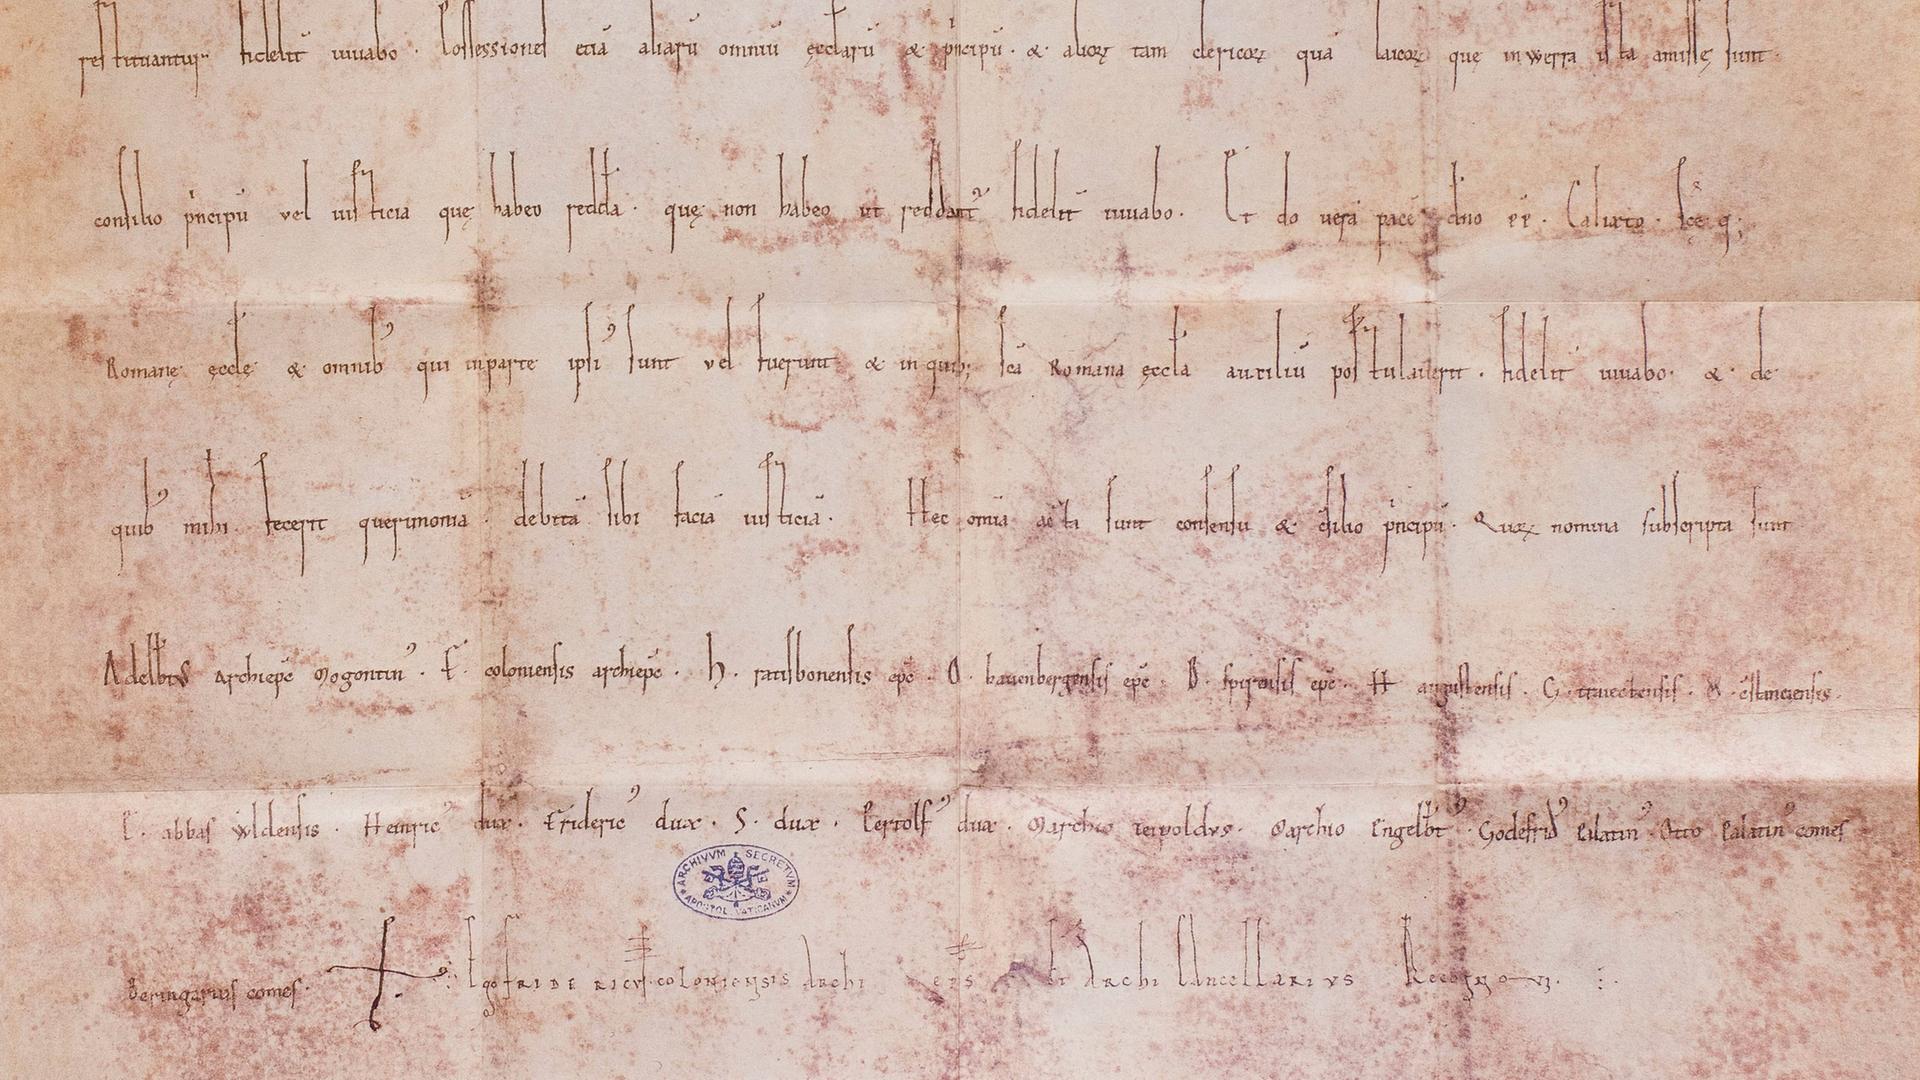 restituantur fidelit iuuabo. Possessiones etiā aliarū omniū ęcclarū & p'ncipū. & alioꝝ tam clericoꝝ quā laicoꝝ quę in werra ista amissę sunt.
consilio p'ncipū vel iusticia quę habeo reddā. quę non habeo ut reddant' fidelit iuuabo. Et do uerā pacē dn̄o pp̄. Calixto. Scę q;
Romanę ęcclę & omnib' qui inparte ipsi' sunt vel fuerunt & in quib; scā Romana ęccla auxiliū postulauerit. fidelit iuuabo. & de
quib' mihi fecerit querimoniā debitā sibi faciā iusticiā. Hec om̄ia acta sunt consensu & c̄silio p'ncipū. Quoꝝ nomina subscripta sunt
Adelb̄tvs archiepc̄ Mogontin'. F. coloniensis archiepc̄. H. ratisbonensis epc̄. O. bauenbergensis epc̄. B. spirensis epc̄. H augustensis. G. traiectensis. c̄stanciensis.
E. abbas wldensis. Heinric' dux. Frideric' dux. S. dux. Pertolf' dux. Marchio teipoldvs. Marchio Engelb̄t'. Godefrid' Palatin'. Otto Palatin' comes
Beringarius comes.
Ego FRIDERICVS COLONIENSIS Archi EPS Et ArchiCAncellARIVS Recognovi.
ARCHIVVM SECRETVM APOSTOL. VATICANVM